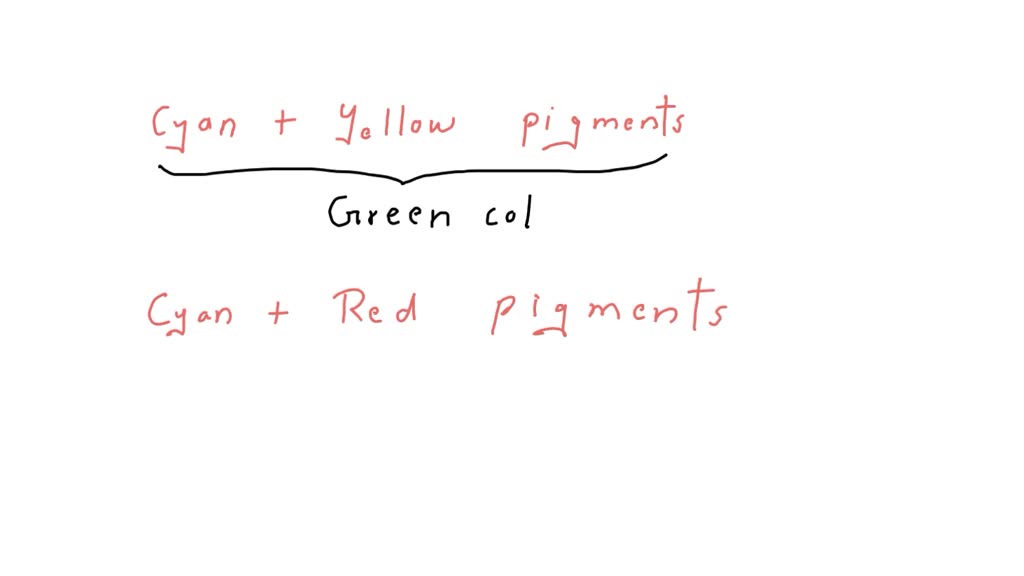 Cyan + Yellow pigments
Green col
Cyan + Red pigments